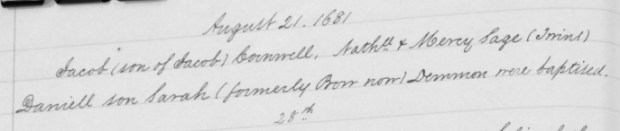 August 21. 1681
Jacob (son of Jacob) Cornwell, Nathll & Mercy Sage (Twins)
Daniell son Sarah (formerly Bow now) Demmon were baptised.
28th